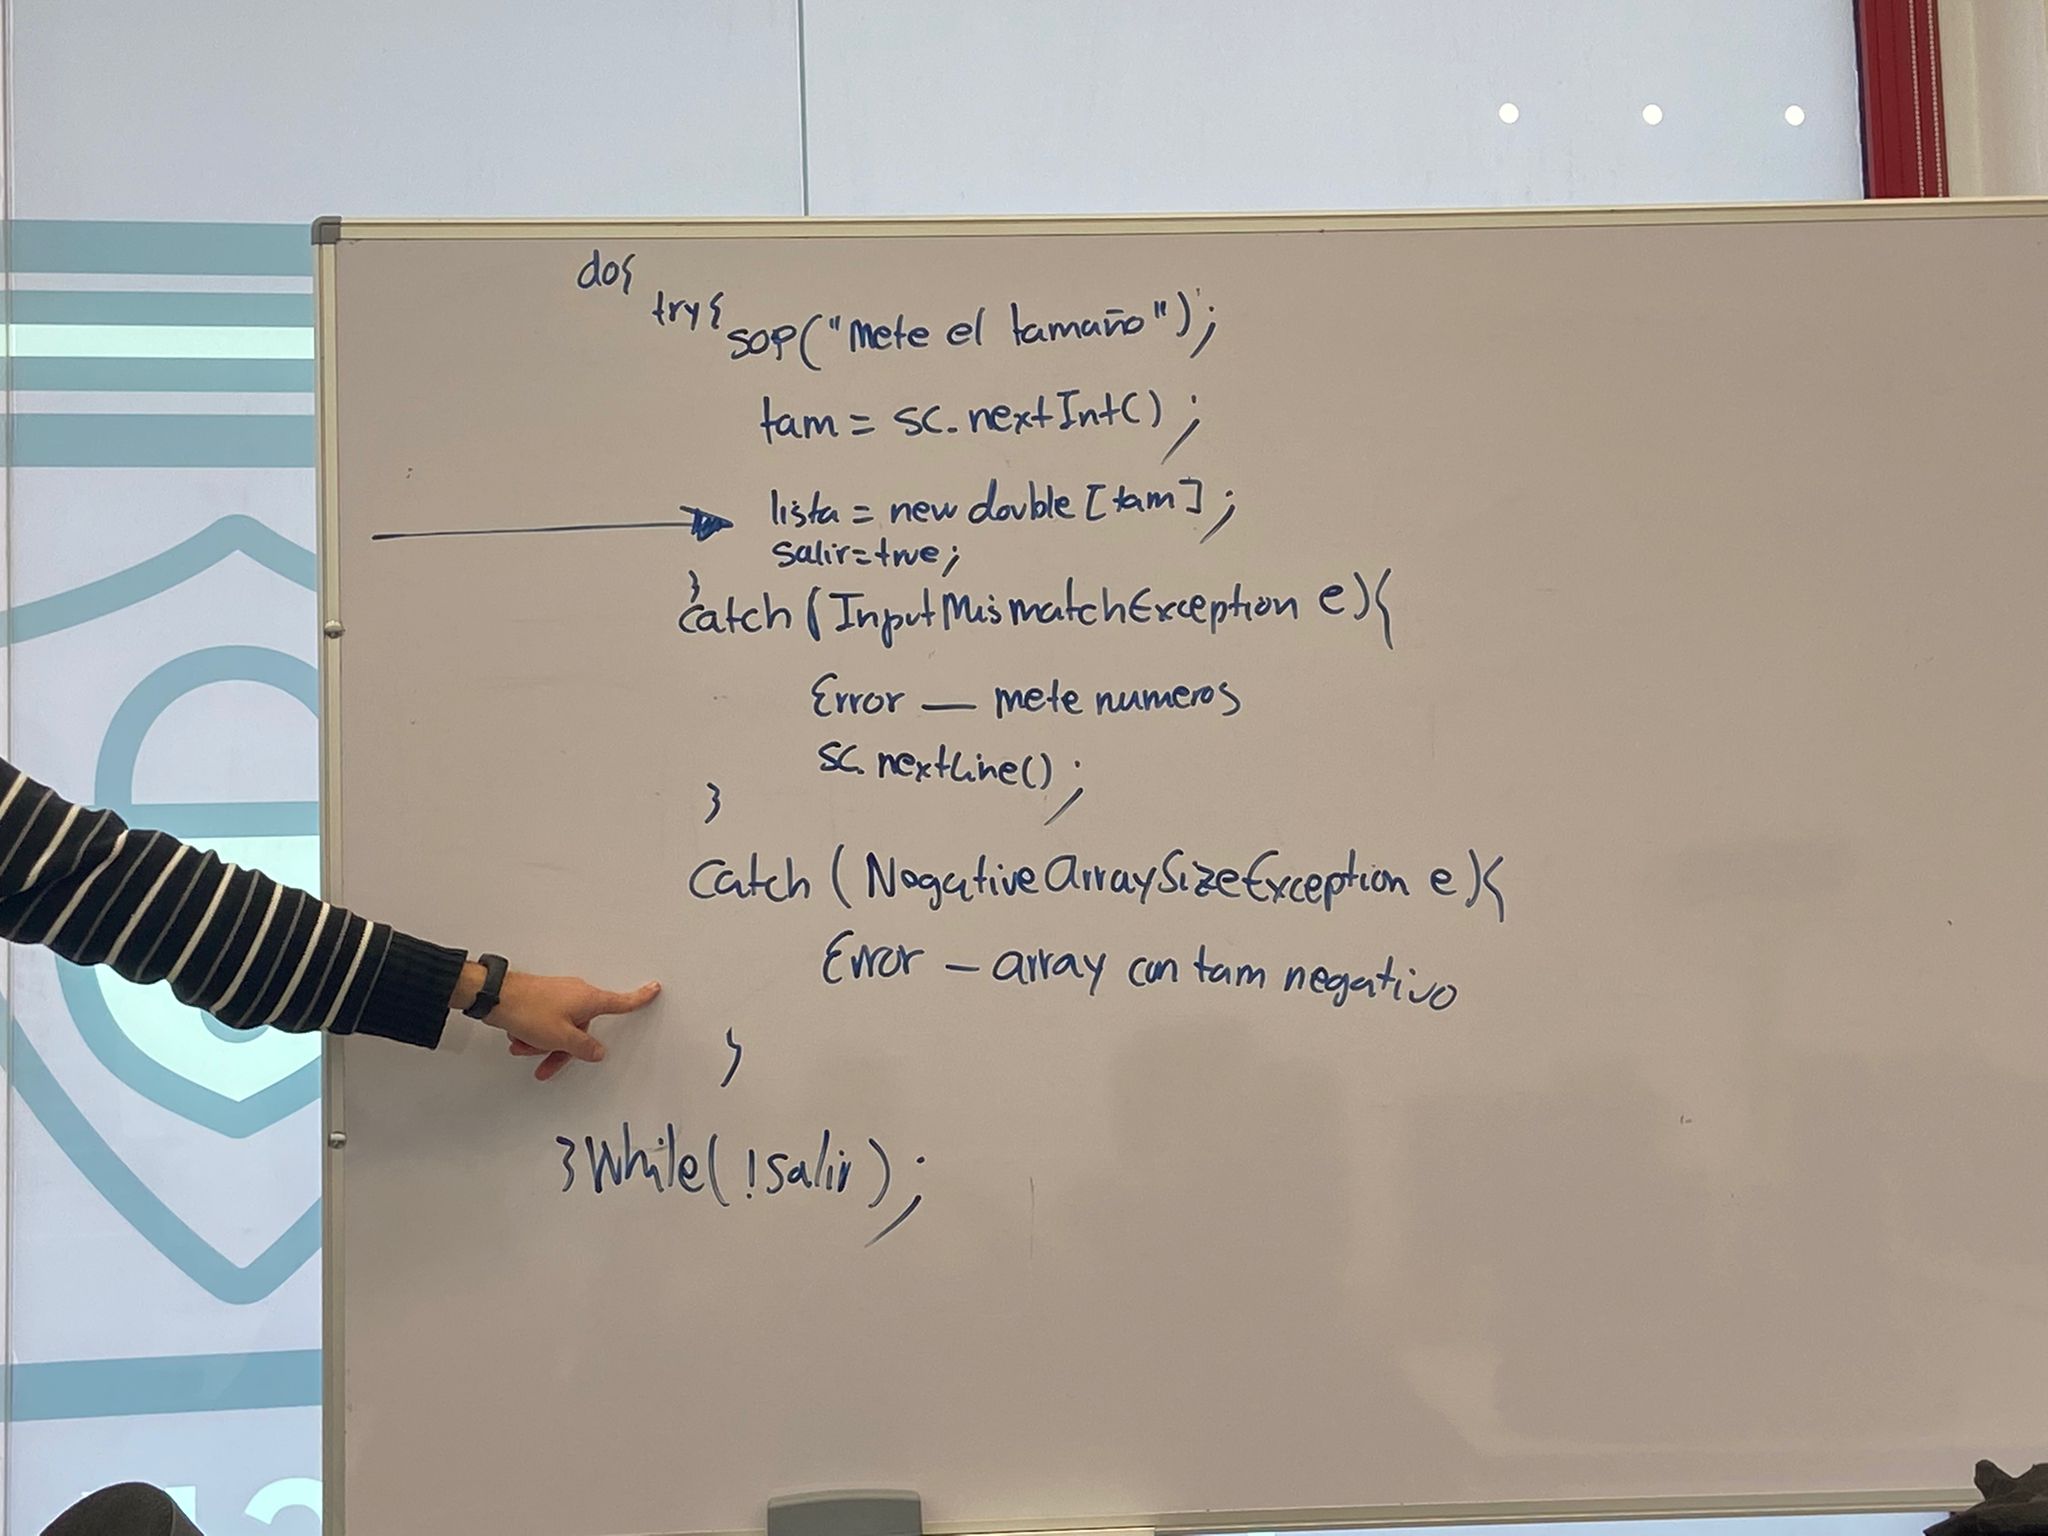 do{
try{
sop("Mete el tamaño");
tam = sc.nextInt();
lista = new double [tam];
salir=true;
}
catch (InputMismatchException e){
Error — mete numeros
sc.nextLine();
}
catch (NegativeArraySizeException e){
Error — array con tam negativo
}
}While(!salir);